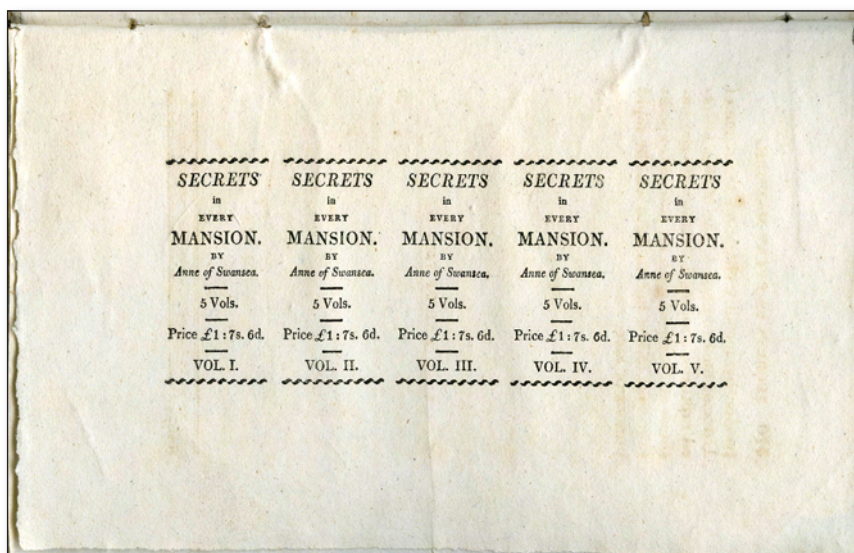 SECRETS
in
EVERY
MANSION.
BY
Anne of Swansea.
5 Vols.
Price £1 : 7s. 6d.
VOL. I.
SECRETS
in
EVERY
MANSION.
BY
Anne of Swansea.
5 Vols.
Price £1 : 7s. 6d.
VOL. II.
SECRETS
in
EVERY
MANSION.
BY
Anne of Swansea.
5 Vols.
Price £1 : 7s. 6d.
VOL. III.
SECRETS
in
EVERY
MANSION.
BY
Anne of Swansea.
5 Vols.
Price £1 : 7s. 6d.
VOL. IV.
SECRETS
in
EVERY
MANSION.
BY
Anne of Swansea.
5 Vols.
Price £1 : 7s. 6d.
VOL. V.